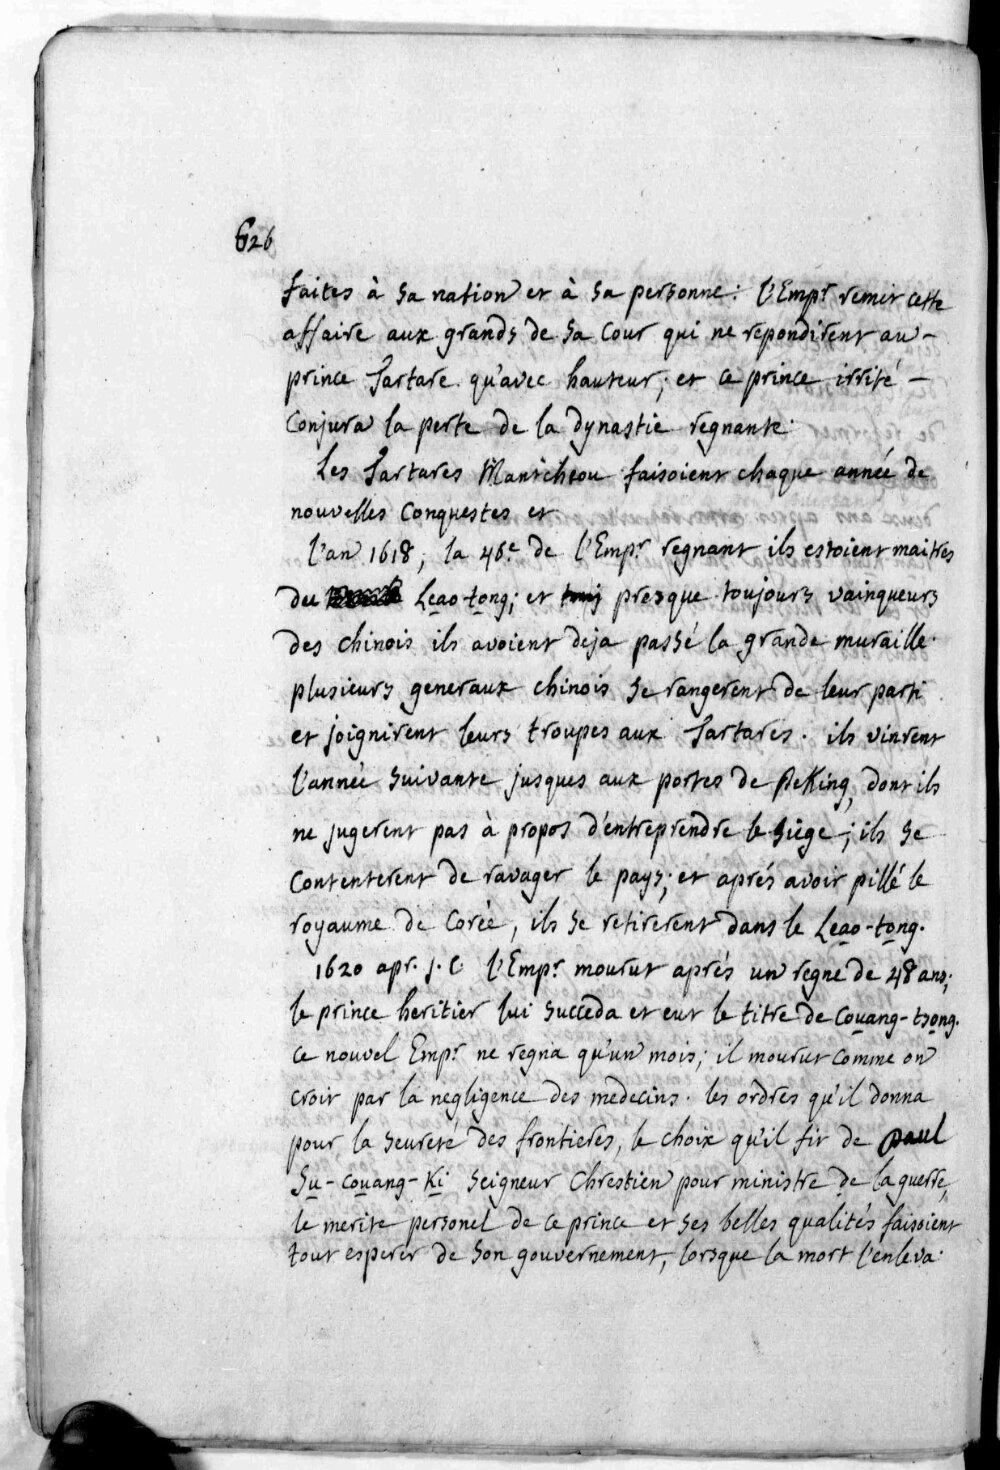 626
faites à sa nation et à sa personne: l'Empr. remit cette
affaire aux grands de sa Cour qui ne repondirent au-
prince Tartare qu'avec hauteur; et ce prince irrité -
Conjura la perte de la dynastie regnante.
Les Tartares Mantcheou faisoient chaque année de
nouvelles Conquestes et
l'an 1618, la 46e de l'Empr. regnant ils estoient maitres
du Leao-tong; et presque toujours vainqueurs
des chinois ils avoient deja passé la grande muraille.
plusieurs generaux chinois se rangerent de leur parti
et joignirent leurs troupes aux Tartares. ils vinrent
l'année suivante jusques aux portes de PeKing, dont ils
ne jugerent pas à propos d'entreprendre le siège; ils se
Contenterent de ravager le pays; et aprés avoir pillé le
royaume de Corée, ils se retirerent dans le Leao-tong.
1620 apr. J.C. l'Empr. mourut aprés un regne de 48 ans;
le prince heritier lui succeda et eut le titre de Couang-tsong.
ce nouvel Empr. ne regna qu'un mois; il mourut comme on
croit par la negligence des medecins. les ordres qu'il donna
pour la seureté des frontieres, le choix qu'il fit de paul
Su-Couang-Ki seigneur Chrestien pour ministre de la guerre,
le merite personel de ce prince et ses belles qualités faisoient
tout esperer de son gouvernement, lorsque la mort l'enleva.